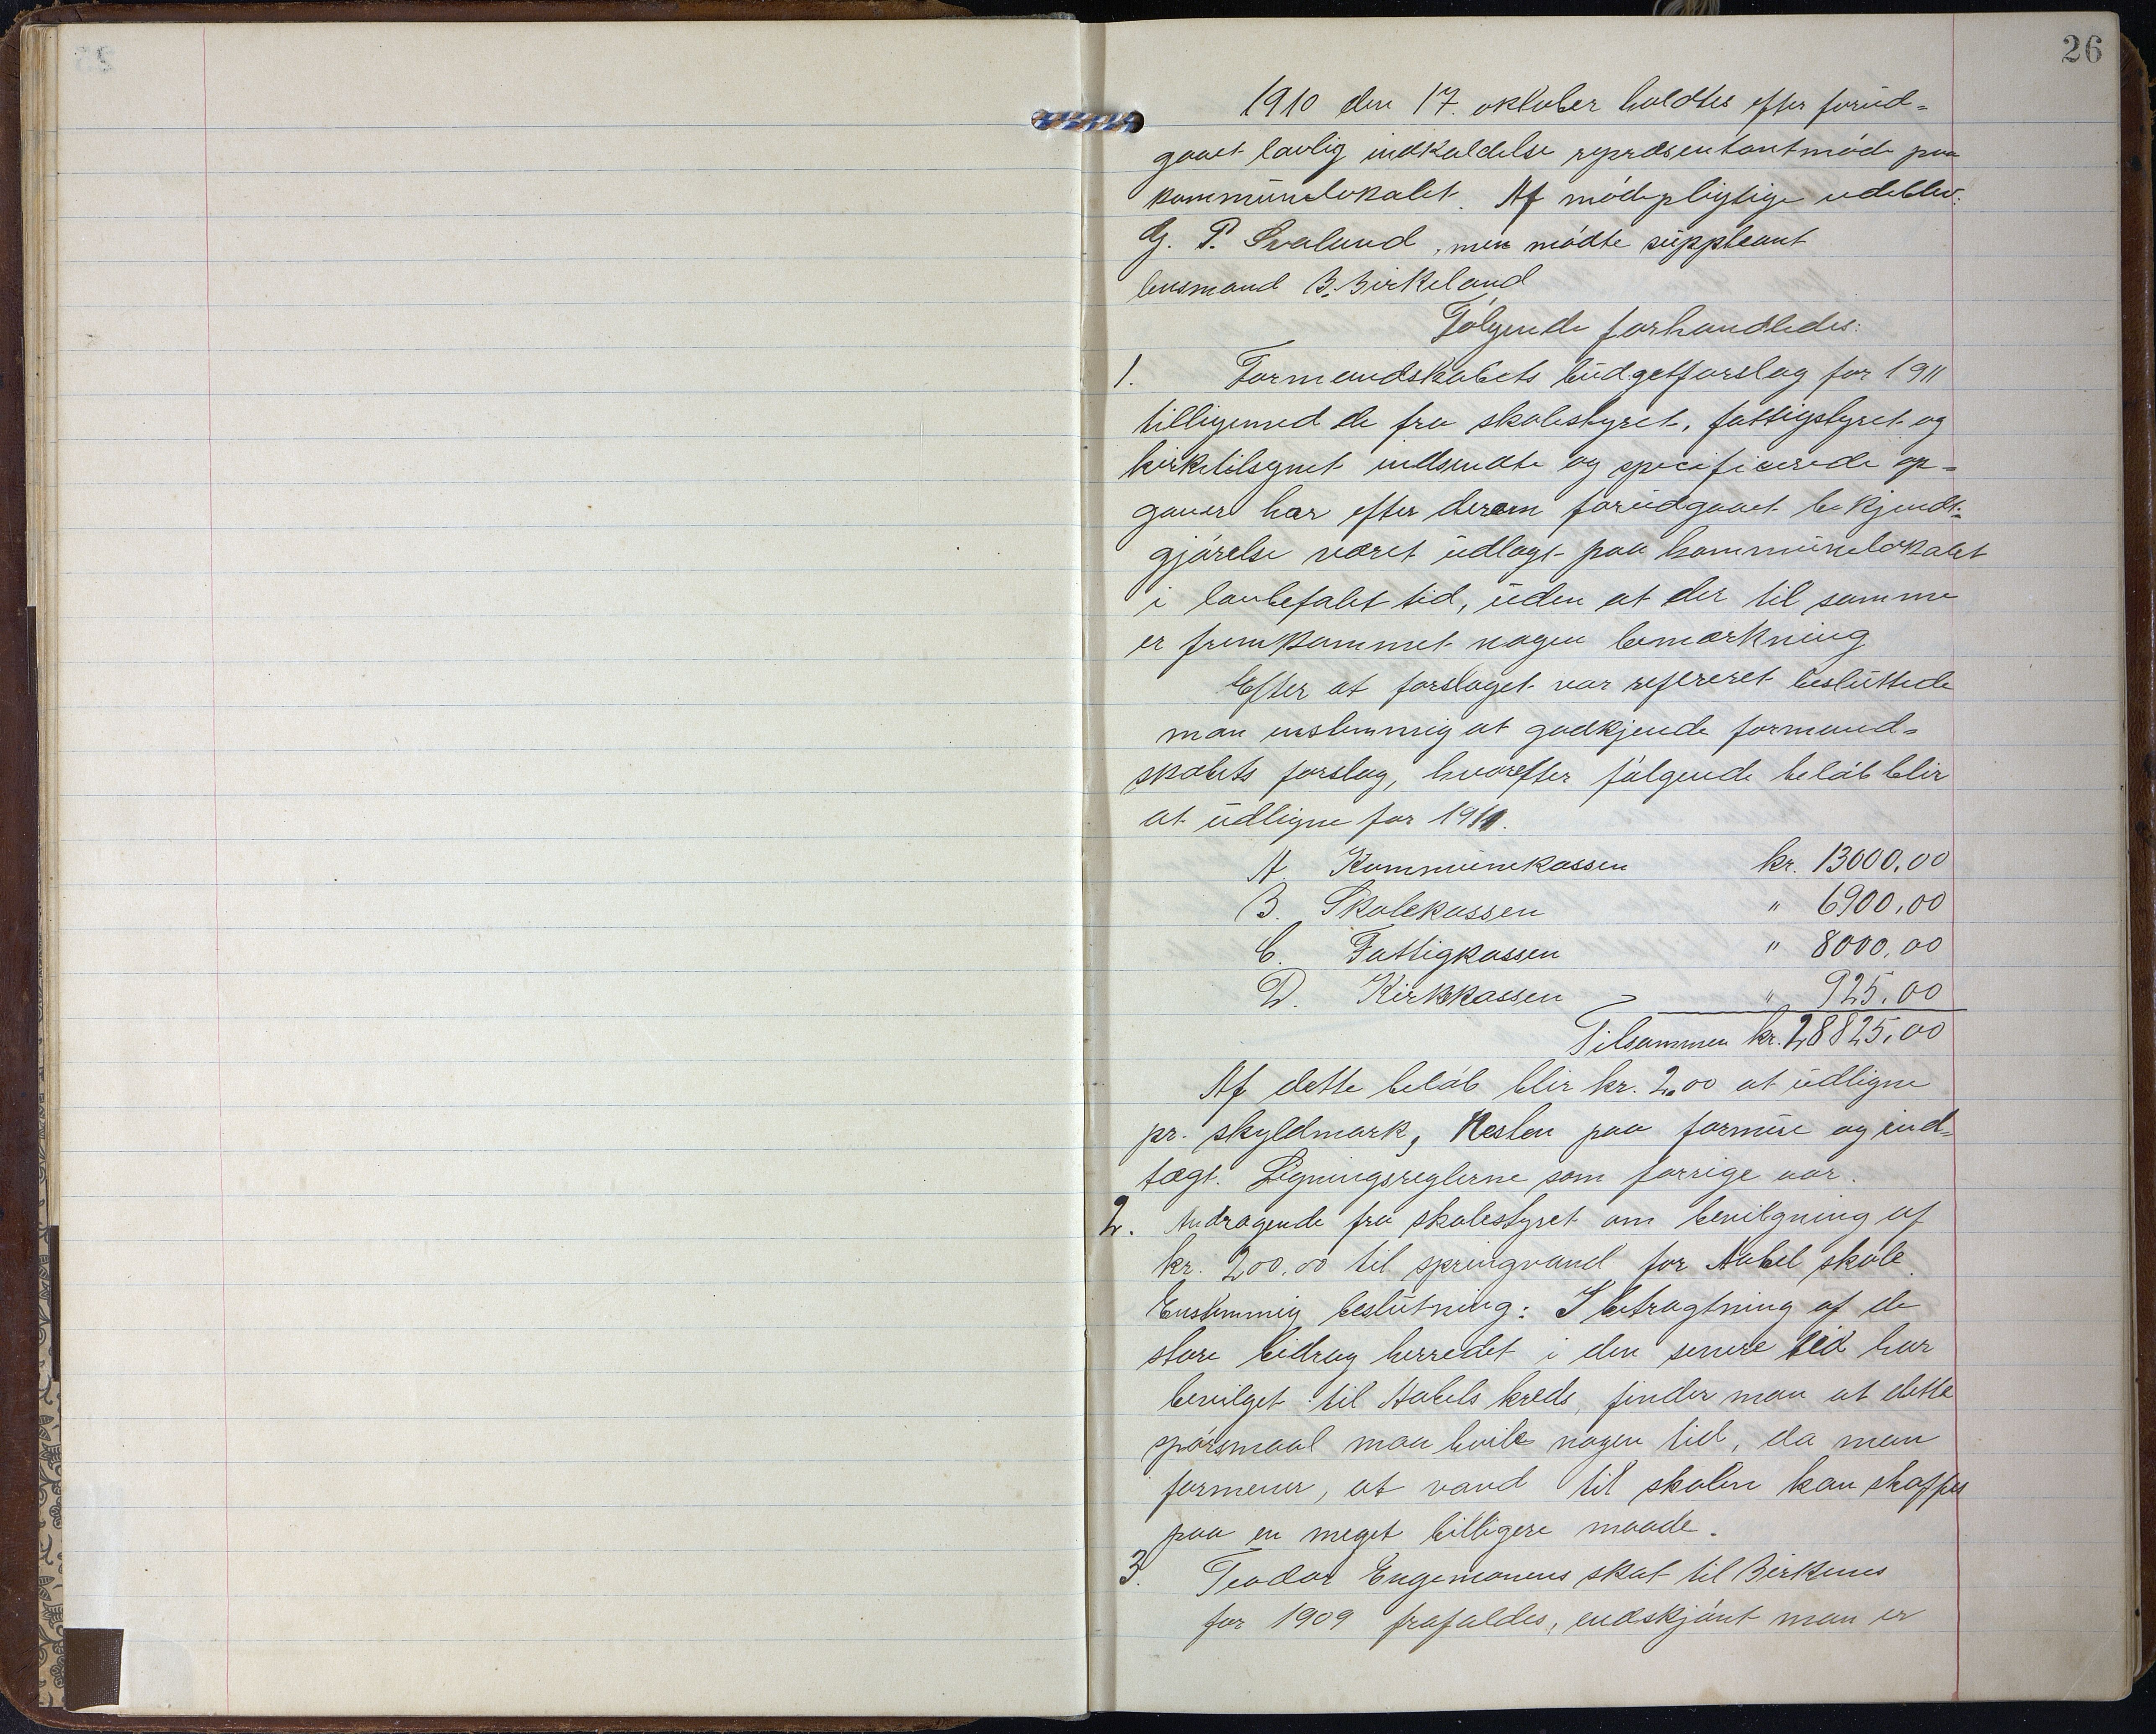 26
1910 den 17. oktober holdtes efter forud-
gaaet lovlig indkaldelse repræsentantmøde paa
kommunelokalet. Af mødepligtige udeblev:
G. P. Svaland, men mødte suppleant
lensmand B. Birkeland
Følgende forhandledes:
1. Formandskabets budgetforslag for 1911
tilligemed de fra skolestyret, fattigstyret og
kirketilsynet indsendte og specificerede op-
gaver har efter derom forudgaaet bekjendt-
gjørelse været udlagt paa kommunelokalet
i lovbefalet tid, uden at der til samme
er fremkommet nogen bemærkning
Efter at forslaget var refereret besluttede
man enstemmig at godkjende formand-
skabets forslag, hvorefter følgende beløb blir
at udligne for 1911.
A. Kommunekassen kr. 13000.00
B. Skolekassen " 6900.00
C. Fattigkassen " 8000.00
D. Kirkekassen - " 925.00
Tilsammen kr. 28825.00
Af dette beløb blir kr. 2.00 at udligne
pr. skyldmark, Resten paa formue og ind-
tægt. Ligningsreglerne som forrige aar.
2. Andragende fra skolestyret om bevilgning af
kr. 200.00 til springvand for Aabel skole.
Enstemmig beslutning: I betragtning af de
store bidrag herredet i den senere tid har
bevilget til Aabels kreds, finder man at dette
spørsmaal maa hvile nogen tid, da man
formener, at vand til skolen kan skaffes
paa en meget billigere maade.
3. Teodor Engemonens skat til Birkenes
for 1909 frafaldes, endskjønt man er